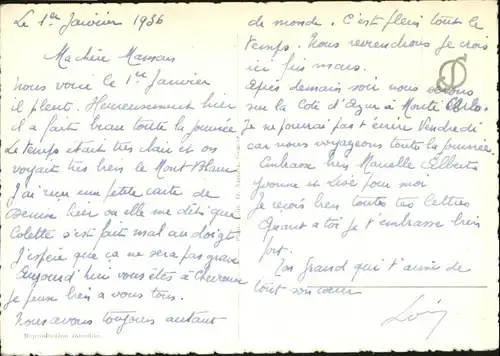 Le 1er Janvier 1956
Ma chère Maman
nous voici le 1er Janvier
il pleut. Heureusement hier
il a fait beau toute la journée
Le temps était très clair et on
voyait très bien le Mont Blanc
J'ai reçu une petite carte de
hier ou elle me dit que
Colette s'est fait mal au doigt
J'espère que ça ne sera pas grave
Aujourd'hui vous êtes à
je pense bien a vous tous.
Nous avons toujours autant
Reproduction interdite
de monde. C'est plein tout le
temps. Nous reviendrons je crois
ici fin mars.
Après demain soir nous serons
sur la Cote d'Azur à Monte Carlo.
Je ne pourrai pas t'écrire Vendredi
car nous voyageons toute la journée.
Embrasse bien Marcelle Albert
Yvonne et Lisé pour moi
Je reçois bien toutes tes lettres
Quant a toi je t'embrasse bien
fort.
Ton Grand qui t'aime de
tout son cœur